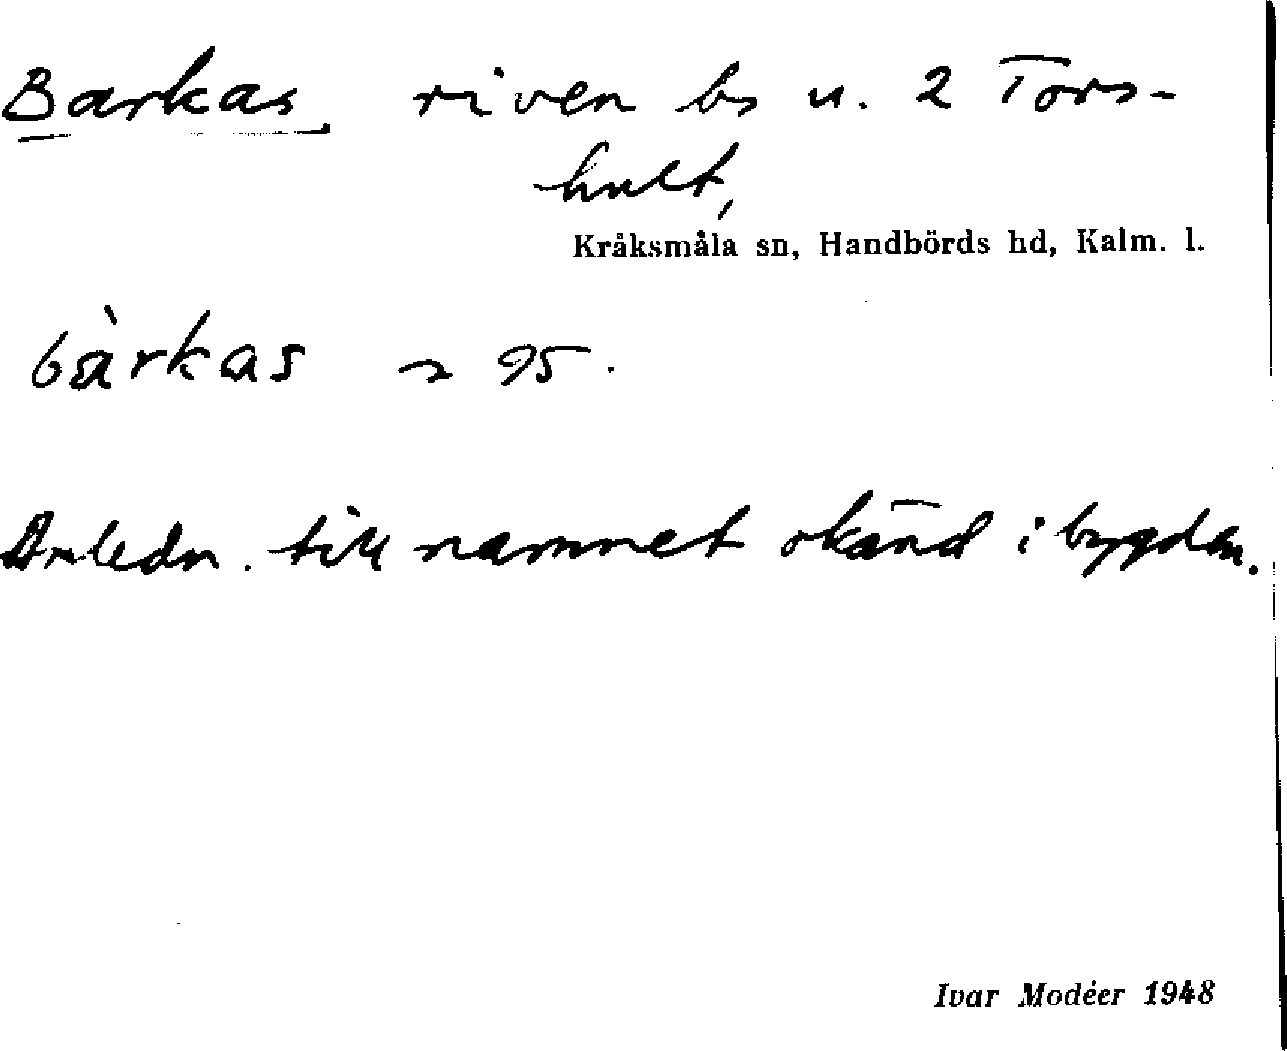 Barkas riven bs u. 2 Tors-
hult,
Kråksmåla sn, Handbörds hd, Kalm. l.
bàrkas 95.
Anledn. till namnet okänd i bygden.
Ivar Modéer 1948